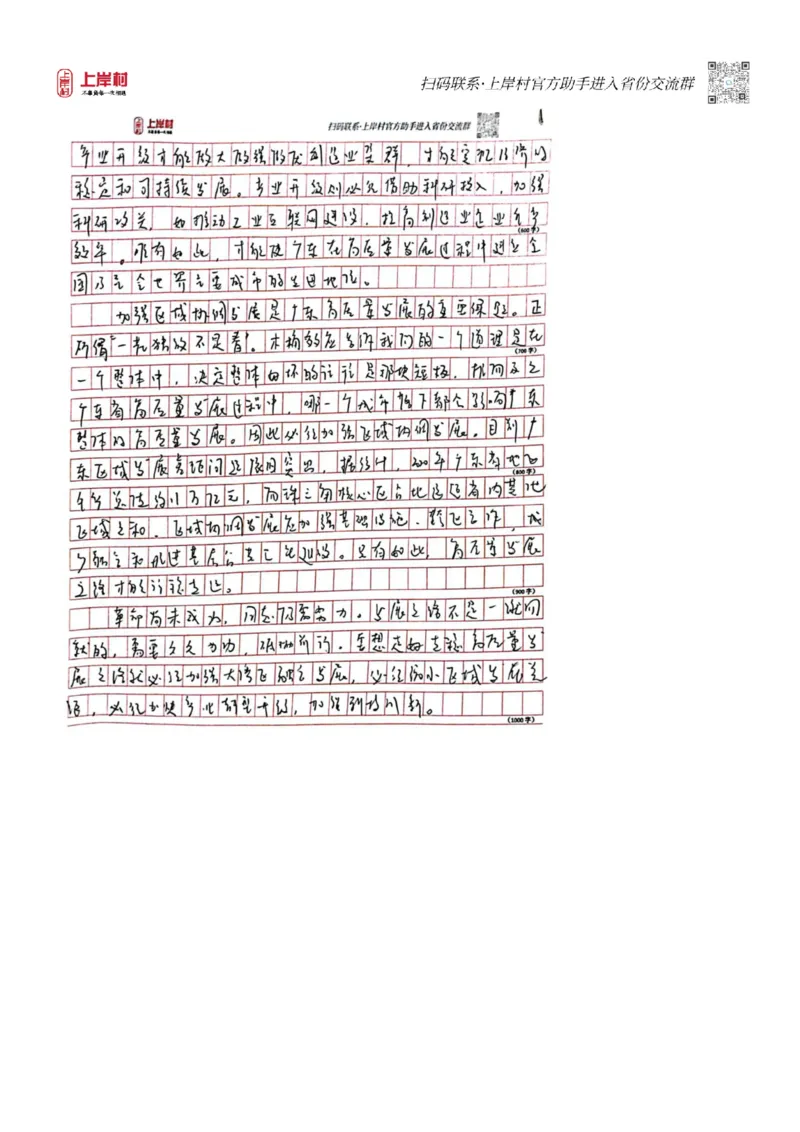 上岸村
扫码联系·上岸村官方助手进入省份交流群
上岸村
扫码联系·上岸村官方助手进入省份交流群
产业升级才能做大做强做优制造业集群,才能实现经济的
稳定和可持续发展。产业升级则必须借助科研投入,加强
科研攻关,如推动工业互联网建设,提高制造业企业
(600字)
。唯有如此,才能使广东在高质量发展过程中
国乃至全世界主要城市的
加强区域协调发展是广东高质量发展的重要保证。正
所谓“一花独放不是春”。木桶效应告诉我们的一个道理是在
(700字)
一个整体中,决定整体好坏的往往是那块短板,
广东省高质量发展过程中,哪一个城市落下都会影响广东
整体的高质量发展。因此必须加强区域协调发展。目前广
东区域发展问题突出,据统计,广东省地区
(800字)
生产总值约11万亿元,而珠三角核心区占地区
区域之和,区域协调发展应加强基础设施
只有如此,高质量发展
之路才能行稳走远。
(900字)
革命尚未成功,同志仍需努力。发展之路不是一
的,需要久久为功,砥砺前行。要想走好走稳高质量发
展之路就必须加强大湾区融合发展,必须缩小区域发展差
距,必须加快产业转型升级,加强
(1000字)